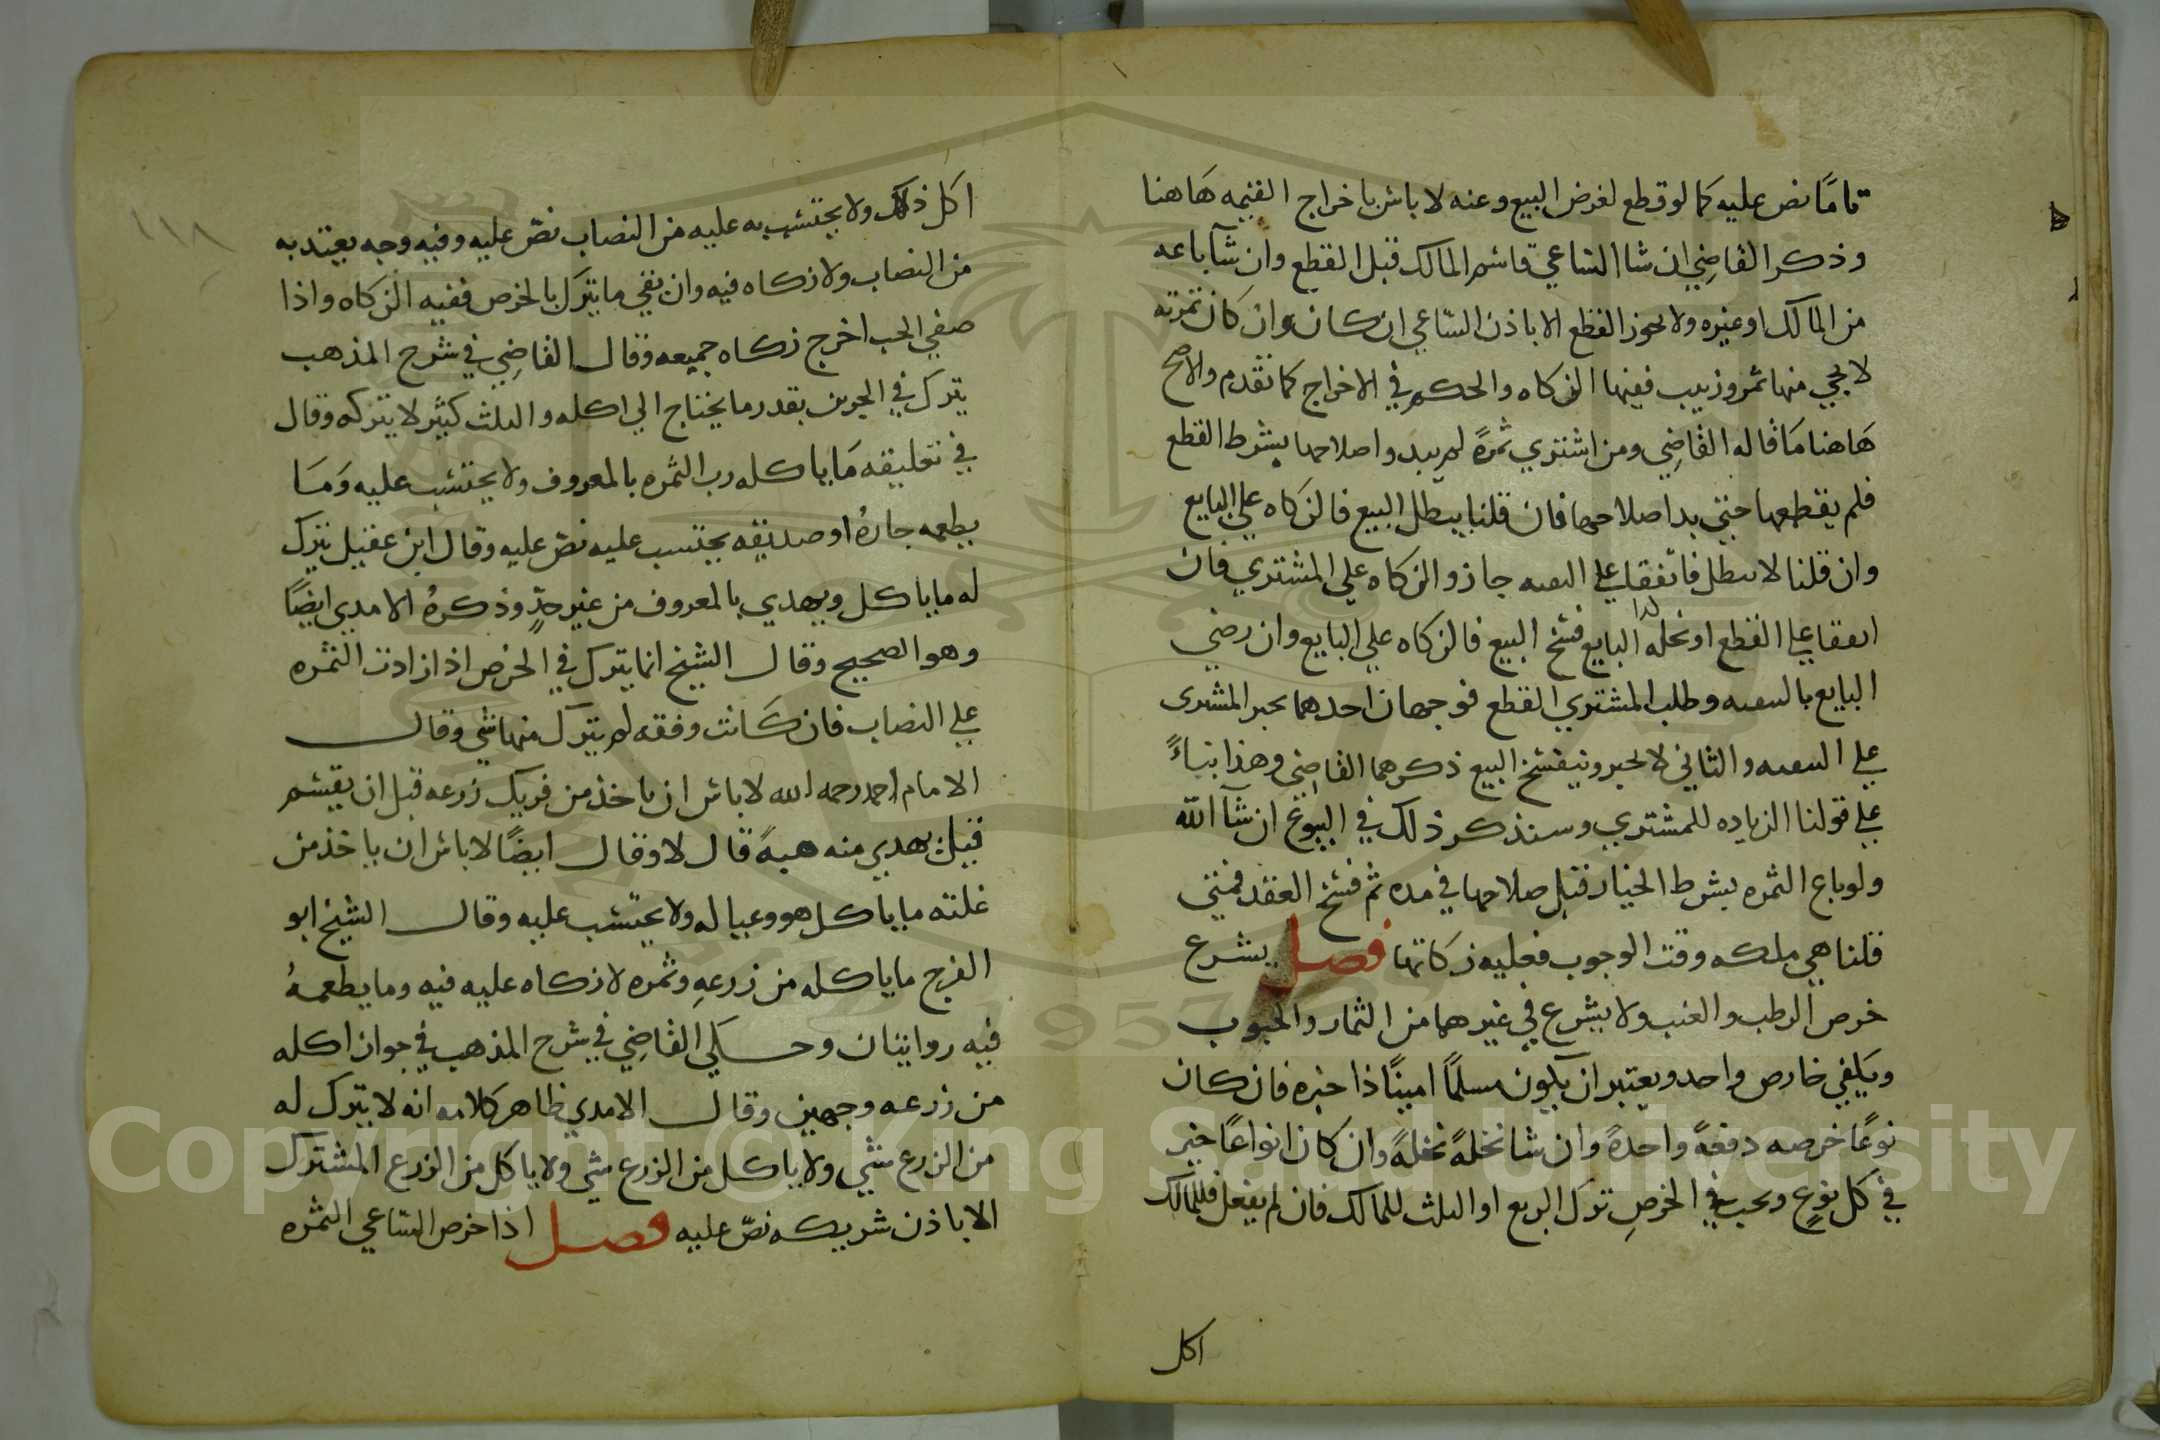 تامًا نص عليه كما لو قطع لغرض البيع وعنه لا باس باخراج القيمه هَاهنا
وذكر القاضِي ان شا الساعي قاسم المالك قبل القطع وان شآ باعه
من المالك او غيره ولا يجوز القطع الا باذن الساعي ان كان وان كان ثمرته
لا يجي منها تمر وزبيب ففيها الزكاه والحكم في الاخراج كما تقدم والاصح
هَاهنا مَا قاله القاضِي ومن اشتري ثمرةً لم يبد واصلاحها بشرط القطع
فلم يقطعها حتي بدا صلاحها فان قلنا يبطل البيع فالزكاه علي البايع
وان قلنا لا يبطل فاتفقا علي التبقيه جاز والزكاه علي المشتري فان
اتفقا علي القطع او نخله البايع فسخ البيع فالزكاه علي البايع وان رضي
البايع بالتبقيه وطلب المشتري القطع فوجهان احدهما يجبر المشتري
علي التبقيه والثاني لا يجبر وينفسخ البيع ذكرهما القاضِي وهذا بناءً
علي قولنا الزياده للمشتري وسنذكر ذلك في البيوع ان شآ الله
ولو باع الثمره بشرط الخيار قبل صلاحها في مده ثم فسخ العقد فمتي
قلنا هي ملكه وقت الوجوب فعليه زكاتها فصل يشرع
خرص الرطب والعنب ولا يشرع في غيرهما من الثمار والحبوب
ويكفي خارص واحد ويعتبر ان يكون مسلمًا امينًا ذا خبره فان كان
نوعًا خرصه دفعةً واحدةً وان شا نخلةً نخلةً وان كان انواعًا خير
في كل نوعٍ ويجب في الخرصِ ترك الربع او الثلث للمالك فان لم يفعل فللمالك
اكل
١١٨
اكل ذلك ولا يحتسب به عليه من النصاب نصّ عليه وفيه وجه يعتد به
من النصاب ولا زكاه فيه وان بقي ما يترك بالخرص ففيه الزكاه واذا
صفي الحب اخرج زكاه جميعه وقال القاضِي في شرح المذهب
يترك في الجرين بقدر ما يحتاج الي اكله والثلث كثير لا يتركه وقال
في تعليقه مَا ياكله رب الثمره بالمعروف ولا يحتسب عليه وَمَا
يطعمه جارهُ او صديقه يحتسب عليه نصّ عليه وقال ابن عقيل يترك
له ما ياكل ويهدي بالمعروف من غير حدٍّ وذكرهُ الامدي ايضًا
وهو الصحيح وقال الشيخ انما يترك في الخرص اذا زادت الثمره
علي النصاب فان كَانت وفقه لم يترك منها شي وقال
الامام احمد رحمه الله لا باس ان ياخذ من فريك زرعه قبل ان يقسم
قيل يهدي منه هبةً قال لا وقال ايضًا لا باس ان ياخذ من
غلته ما ياكل هو وعياله ولا يحتسب عليه وقال الشيخ ابو
الفرج ما ياكله من زرعهِ وثمره لا زكاه عليه فيه وما يطعمهُ
فيه روايتان وحكي القاضِي في شرح المذهب في جواز اكله
من زرعه وجهين وقال الامدي ظاهر كلامه انه لا يترك له
من الزرع شي ولا ياكل من الزرع شي ولا ياكل من الزرع المشترك
الا باذن شريكه نصّ عليه فصل اذا خرص الساعي الثمره
Copyright © King Saud University
1957